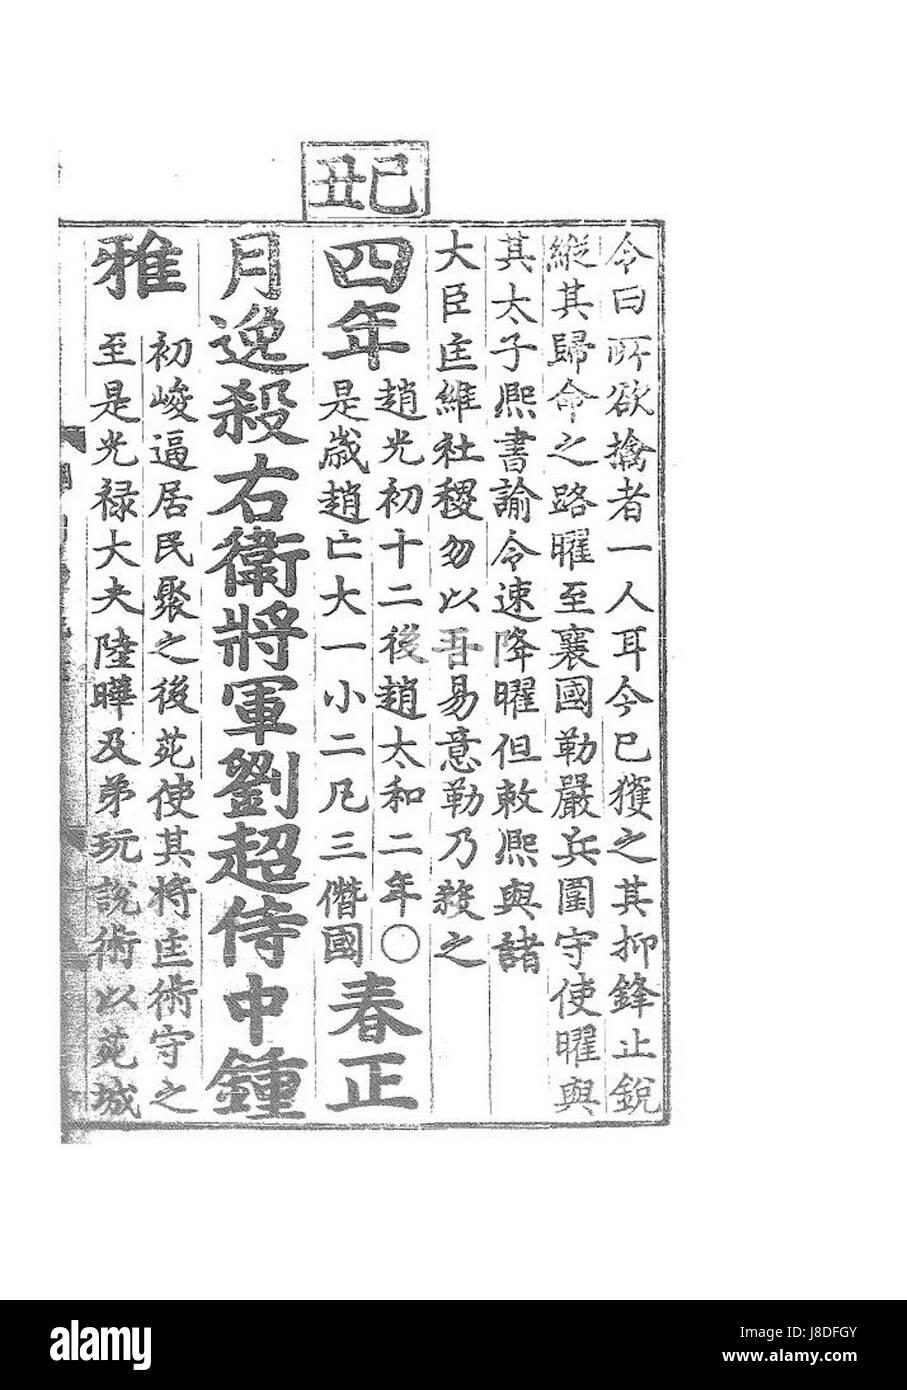 己丑
令曰所欲擒者一人耳今已獲之其抑鋒止銳
縱其歸命之路曜至襄國勒嚴兵圍守使曜與
其太子熙書諭令速降曜但敕熙與諸
大臣匡維社稷勿以吾易意勒乃殺之
四年
趙光初十二後趙太和二年○
是歲趙亡大一小二凡三僭國
春正
月逸殺右衛將軍劉超侍中鍾
雅
初峻逼居民聚之後苑使其將匡術守之
至是光禄大夫陸曄及弟玩說術以苑城
alamy
Image ID: J8DFGY
www.alamy.com